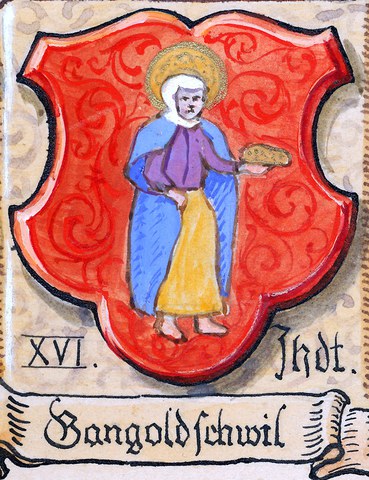 XVI. Jhdt.
Gangoldschwil